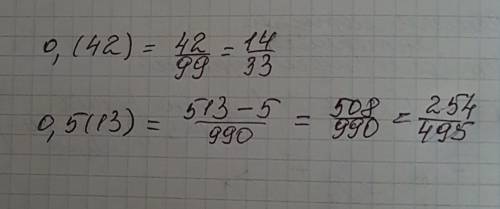 0,(42) = 42/99 = 14/33
0,5(13) = 513-5/990 = 508/990 = 254/495